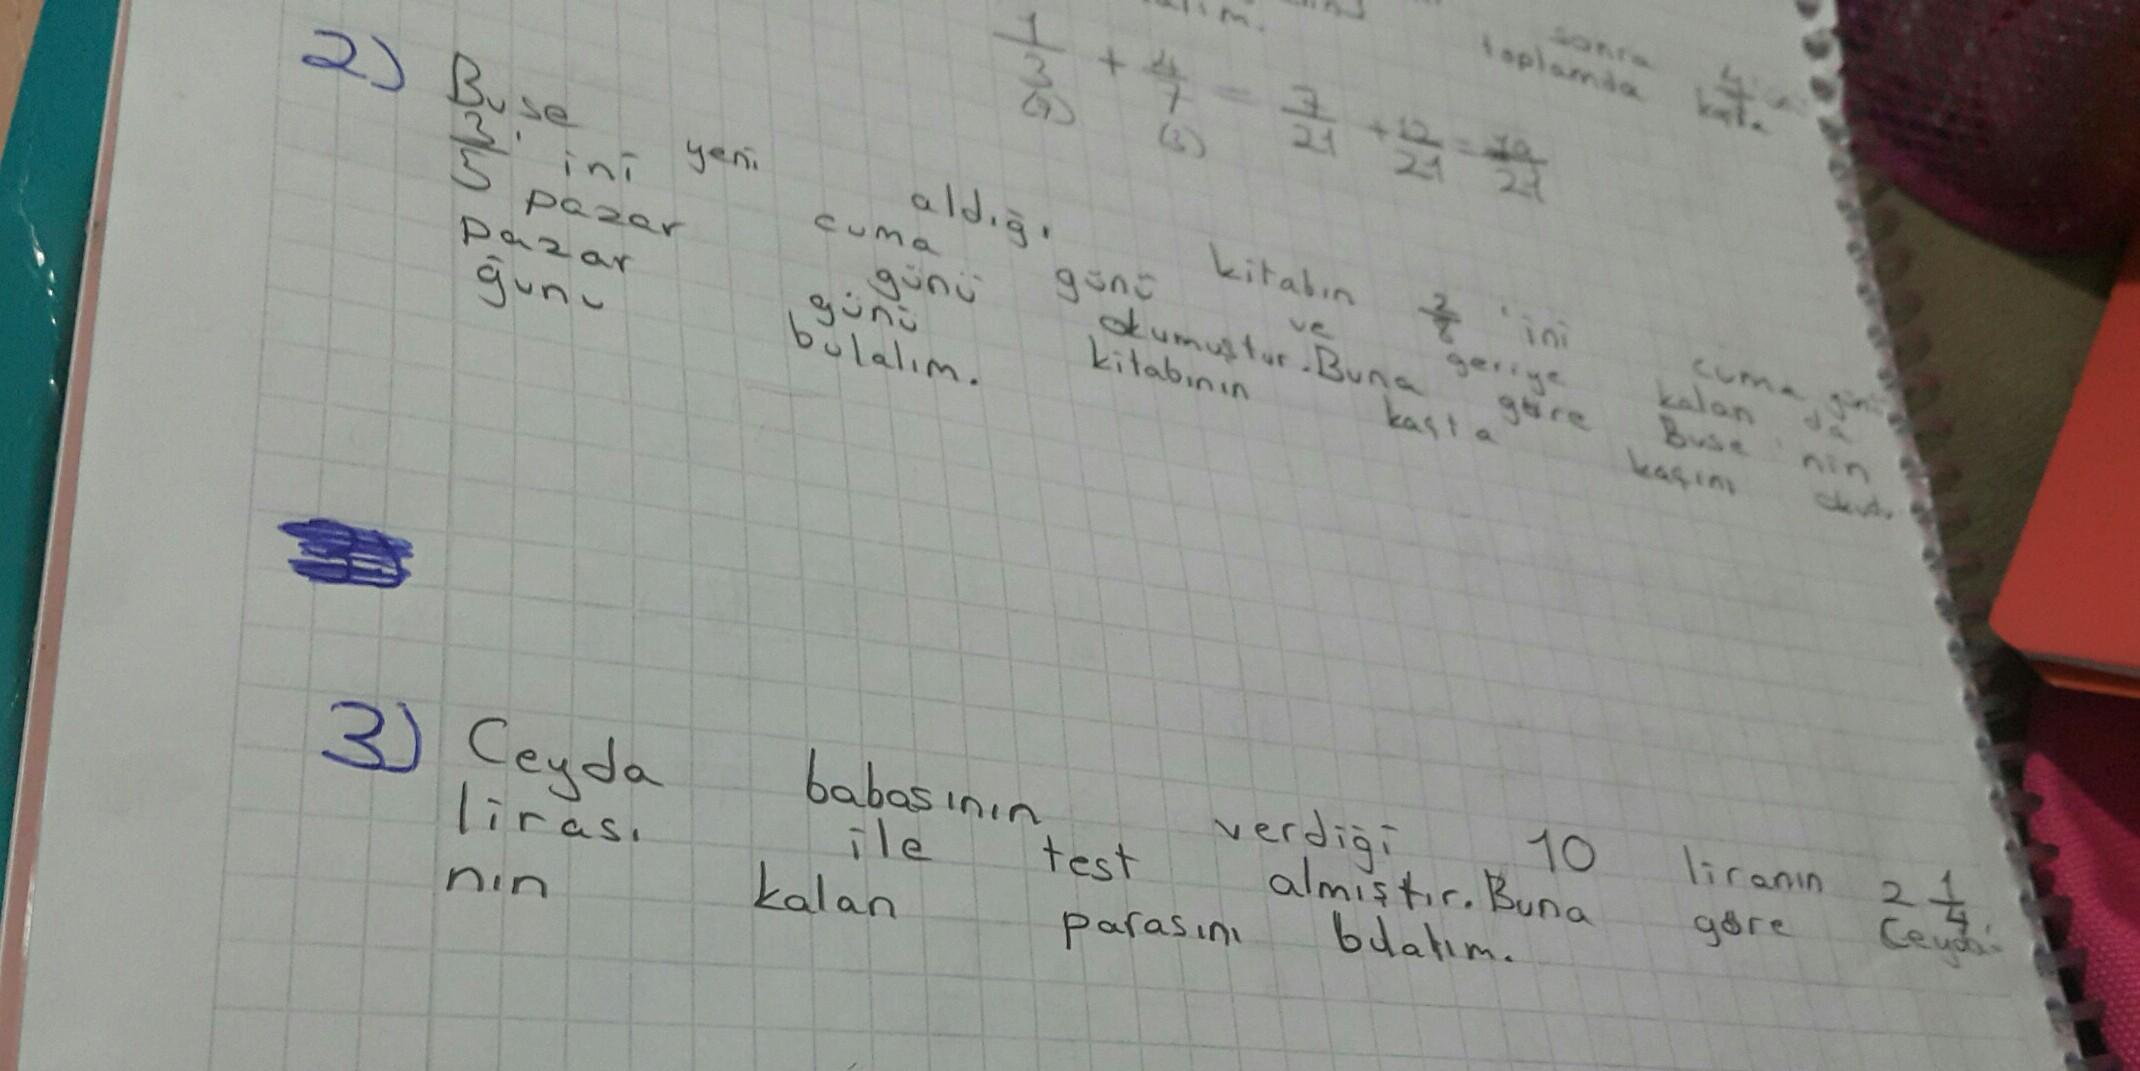 sonra 4/7
toplamda kaçta
1/3 + 4/7 = 7/21 + 12/21 = 19/21
(7) (3)
2) Buse yeni aldığı kitabın 'ini cuma günü
3/5' ini cuma günü ve geriye kalan da
pazar günü okumuştur. Buna göre Buse'nin
pazar günü kitabının kaçta kaçını
günü bulalım.
3) Ceyda babasının verdiği 10 liranın 2 1/4
lirası ile test almıştır. Buna göre Ceyda'
nın kalan parasını bulalım.